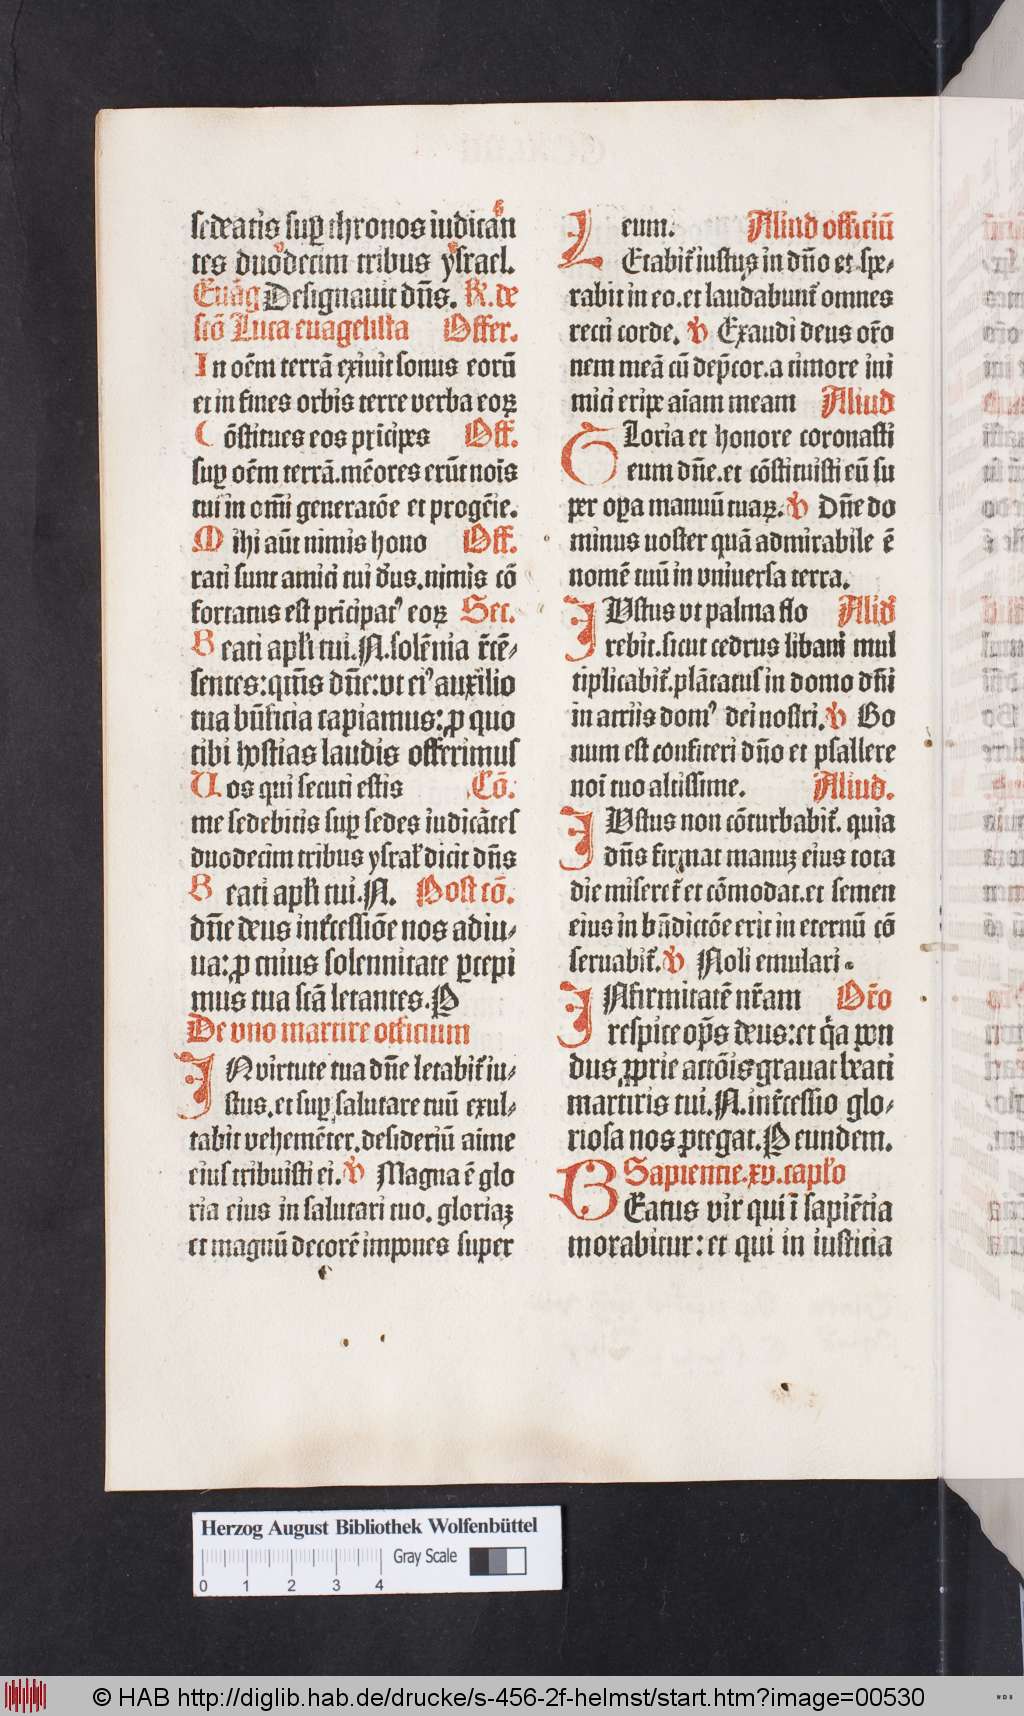 sedeatis suꝑ thronos iudican
tes duodecim tribus ysrael.
Euãg Designauit dñs. R. de
scõ Luca euãgelista Offer.
In oẽm terrã exiuit sonus eorũ
et in fines orbis terre verba eoꝝ
Cõstitues eos pricipes Off.
suꝑ oẽm terrã.mẽores erũt nois
tui in omi generatõe et progẽie.
Mihi aũt nimis hono Off.
rati sunt amici tui dˀus.nimis cõ
fortatus est pricipatꝰ eoꝝ Sec.
Beati apłi tui.N.solẽnia r̃cẽ⸗
sentes:qm̃s dñe:vt eiꝰ auxilio
tua bñficia capiamus:ꝓ quo
tibi hostias laudis offerimus
Uos qui secuti estis Cõ.
me sedebitis suꝑ sedes iudicãtes
duodecim tribus ysrał dicit dñs
Beati apłi tui.N. Post cõ.
dñe deus int̃cessiõe nos adiu⸗
ua:ꝓ cuius solennitate ꝑcepi
mus tua scã letantes.P
De vno martire officium
IN virtute tua dñe letabit̃ iu⸗
stus.et suꝑ salutare tuũ exul⸗
tabit vehemẽter.desideriũ aime
eius tribuisti ei. ℣ Magna ẽ glo
ria eius in salutari tuo. gloriaꝫ
et magnũ decorẽ impones super
eum. Aliud officiũ
LEtabit̃ iustus in dño et spe⸗
rabit in eo.et laudabunt̃ omnes
recti corde. ℣ Exaudi deus or̃o
nem meã cũ dep̃cor.a timore ini
mici eripe aĩam meam Aliud
GLoria et honore coronasti
eum dñe.et cõstituisti eũ su
per oꝑa manuũ tuaꝝ. ℣ Dñe do
minus noster quã admirabile ẽ
nomẽ tuũ in vniuersa terra.
IUstus vt palma flo Alid̃
rebit.sicut cedrus libani mul
tiplicabit̃.plãtatus in domo dñi
in atriis domꝰ dei nostri. ℣ Bo
num est confiteri dño et psallere
noi tuo altissime. Aliud.
IUstus non cõturbabit̃. quia
dñs firmat manuꝫ eius tota
die miseret̃ et cõmodat.et semen
eius in bñdictõe erit in eternũ cõ
seruabit̃. ℣ Noli emulari.
INfirmitatẽ nr̃am Or̃o
respice op̃s deus:et q̃a pon
dus ꝓprie actõis grauat beati
martiris tui.N.int̃cessio glo⸗
riosa nos ꝓtegat.P eundem.
Sapientie.xv.capło
BEatus vir qui ĩ sapiẽtia
morabitur:et qui in iusticia
Herzog August Bibliothek Wolfenbüttel
Gray Scale
0 1 2 3 4
© HAB http://diglib.hab.de/drucke/s-456-2f-helmst/start.htm?image=00530